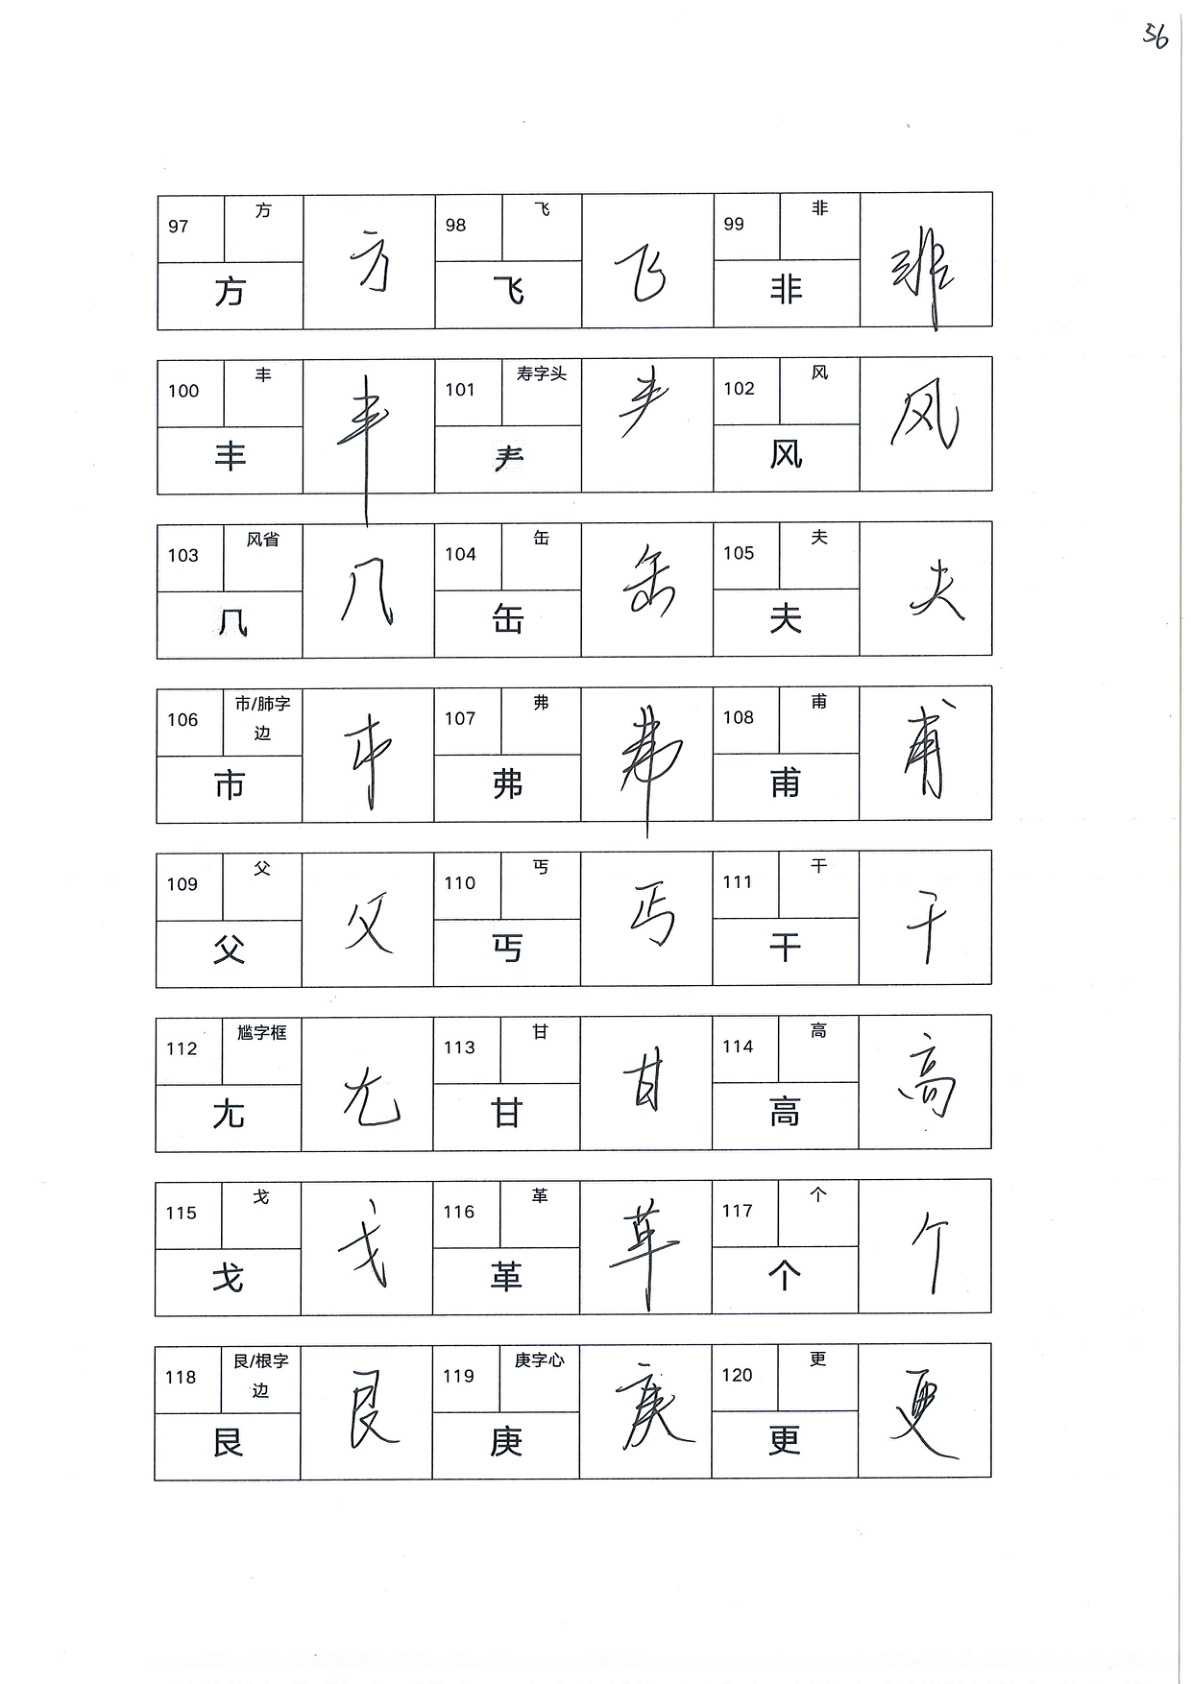 56
97 方 方 98 飞 飞 99 非 非
方 飞 非
100 丰 丰 101 寿字头 𡗗 102 风 风
丰 龵 风
103 风省 几 104 缶 缶 105 夫 夫
几 缶 夫
106 市/肺字边 市 107 弗 弗 108 甫 甫
市 弗 甫
109 父 父 110 丐 丐 111 干 干
父 丐 干
112 尴字框 尢 113 甘 甘 114 高 高
尢 甘 高
115 戈 戈 116 革 革 117 个 个
戈 革 个
118 艮/根字边 艮 119 庚字心 庚 120 更 更
艮 庚 更